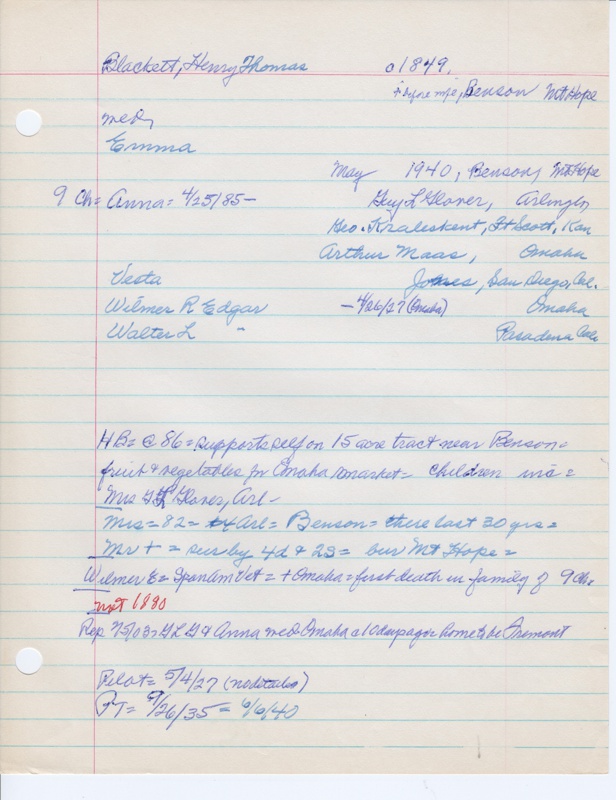 Blackett, Henry Thomas o 1849,
+ before wife, Benson Mt Hope
med,
Emma
May 1940, Benson, Mt Hope
9 Ch = Anna = 4/25/85 - Guy L Glover, Arlington
Geo. Kraleskent, Ft Scott, Kan
Arthur Maas, Omaha
Vesta Jones, San Diego, Cal.
Wilmer R Edgar - 4/26/27 (Omaha) Omaha
Walter L " Pasadena Cal
HB = @ 86 = supports self on 15 acre tract near Benson =
fruit & vegetables for Omaha market = children inc =
Mrs G L Glover, Arl -
Mrs = 82 = Arl = Benson = there last 30 yrs =
Mr + = sur by 4d & 2s = bur Mt Hope =
Wilmer E = Span Am Vet = + Omaha = first death in family of 9 Ch.
not 1880
Rep 7/3/03 = G L G & Anna med Omaha home to be Fremont
Pilot = 5/4/27 (no details)
PT = 9/26/35 = 6/6/40